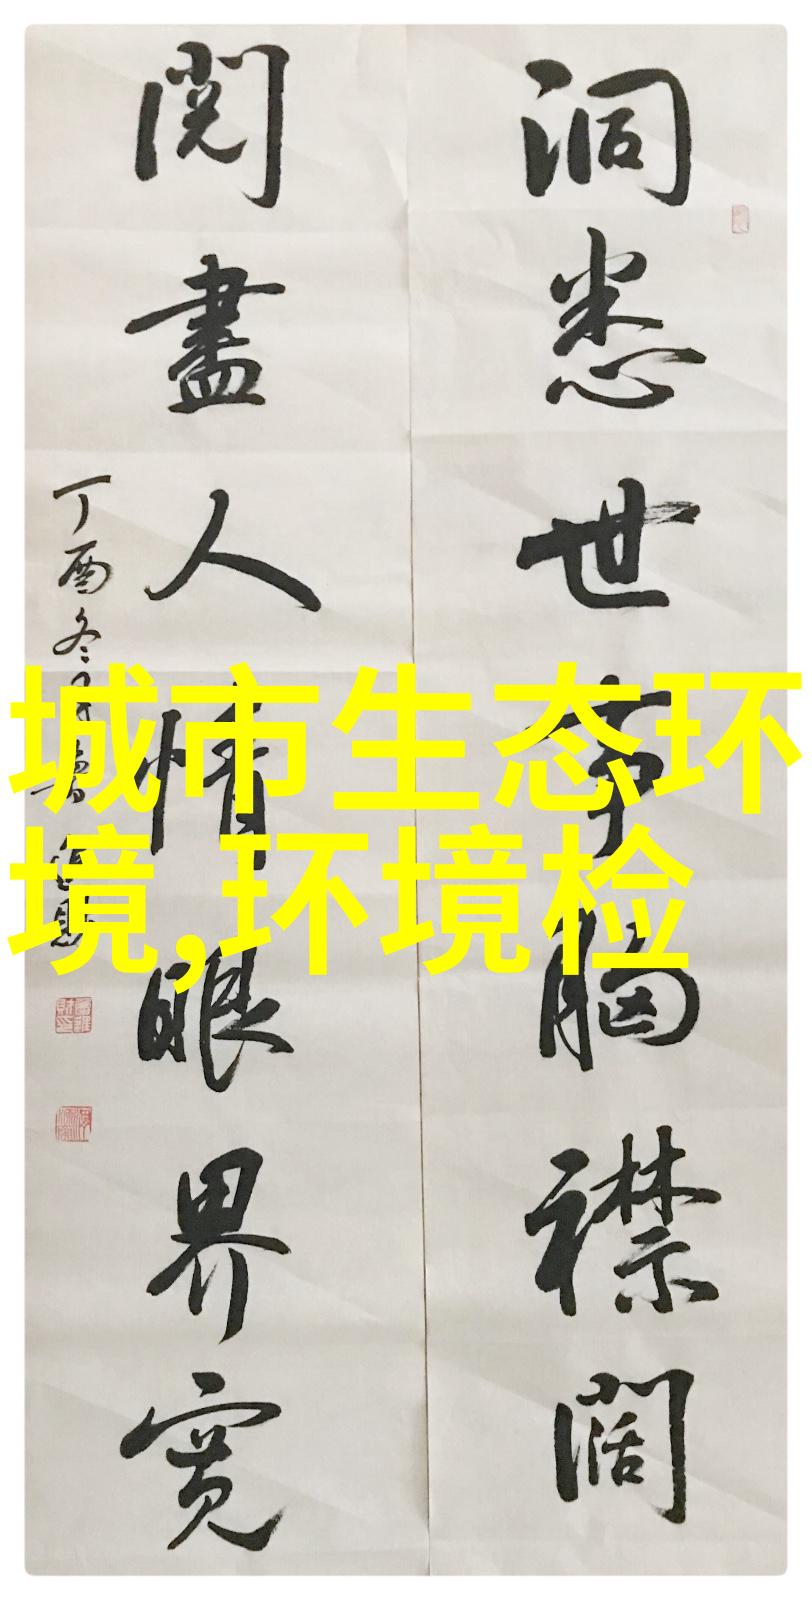 洞悉世事胸襟闊
閱盡人情眼界寬
丁酉冬月書
城市生态环
境,环境检